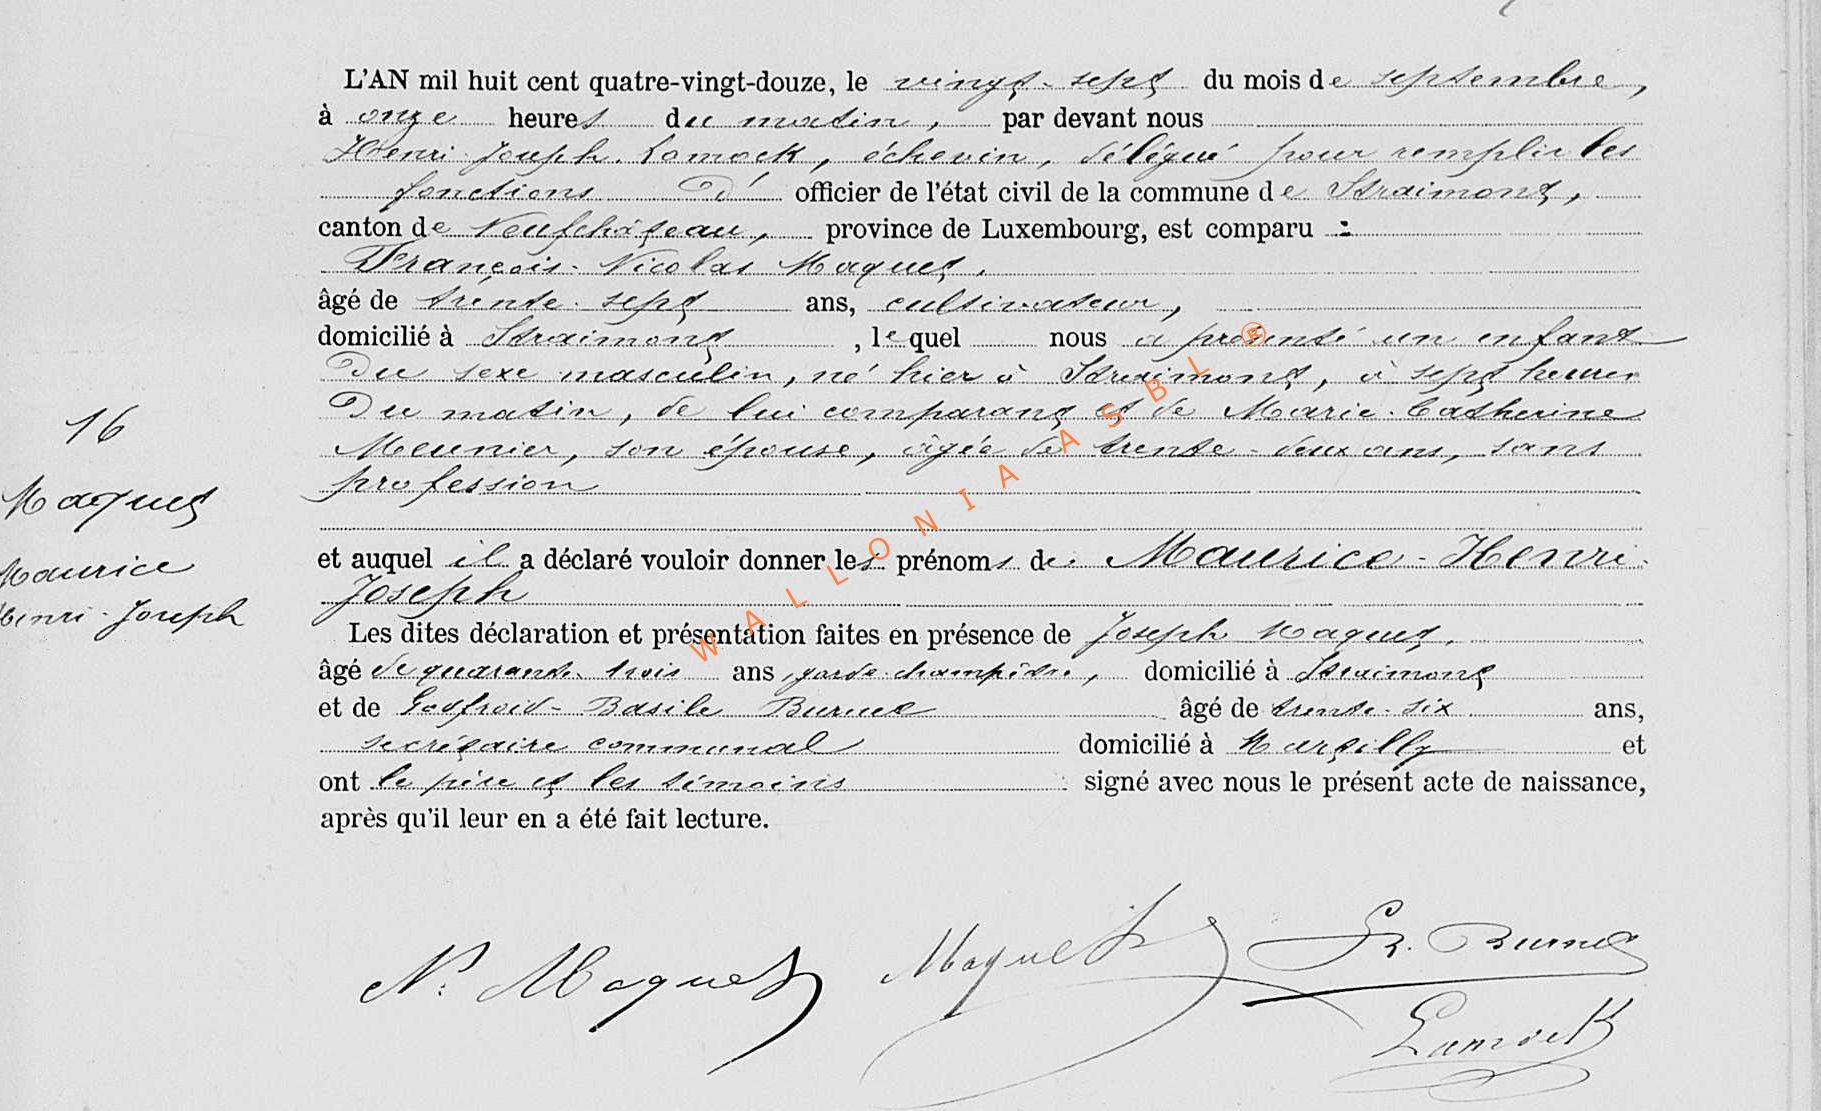 L'AN mil huit cent quatre-vingt-douze, le vingt-sept du mois de septembre,
à onze heures du matin, par devant nous
Henri-Joseph Lamock, échevin, délégué pour remplir les
fonctions d' officier de l'état civil de la commune de Straimont,
canton de Neufchâteau, province de Luxembourg, est comparu :
François-Nicolas Maquet,
âgé de trente-sept ans, cultivateur,
domicilié à Straimont, lequel nous a présenté un enfant
du sexe masculin, né hier à Straimont, à sept heures
du matin, de lui comparant et de Marie-Catherine
Meunier, son épouse, âgée de trente-deux ans, sans
profession
et auquel il a déclaré vouloir donner les prénoms de Maurice-Henri-
Joseph
Les dites déclaration et présentation faites en présence de Joseph Maquet,
âgé de quarante-trois ans, garde-champêtre, domicilié à Straimont
et de Godfroid-Basile Burnet âgé de trente-six ans,
secrétaire communal domicilié à Martilly et
ont le père et les témoins signé avec nous le présent acte de naissance,
après qu'il leur en a été fait lecture.
16
Maquet
Maurice
Henri-Joseph
N. Maquet Maquet J. Burnet
Lamock
WALLONIA ASBL ®